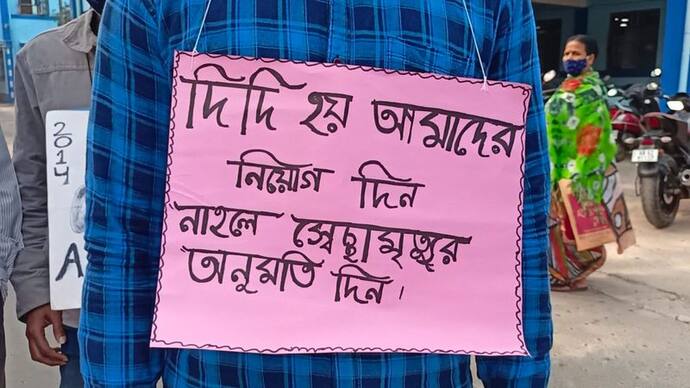 দিদি হয় আমাদের
নিয়োগ দিন
নাহলে স্বেচ্ছামৃত্যুর
অনুমতি দিন।
2014
A